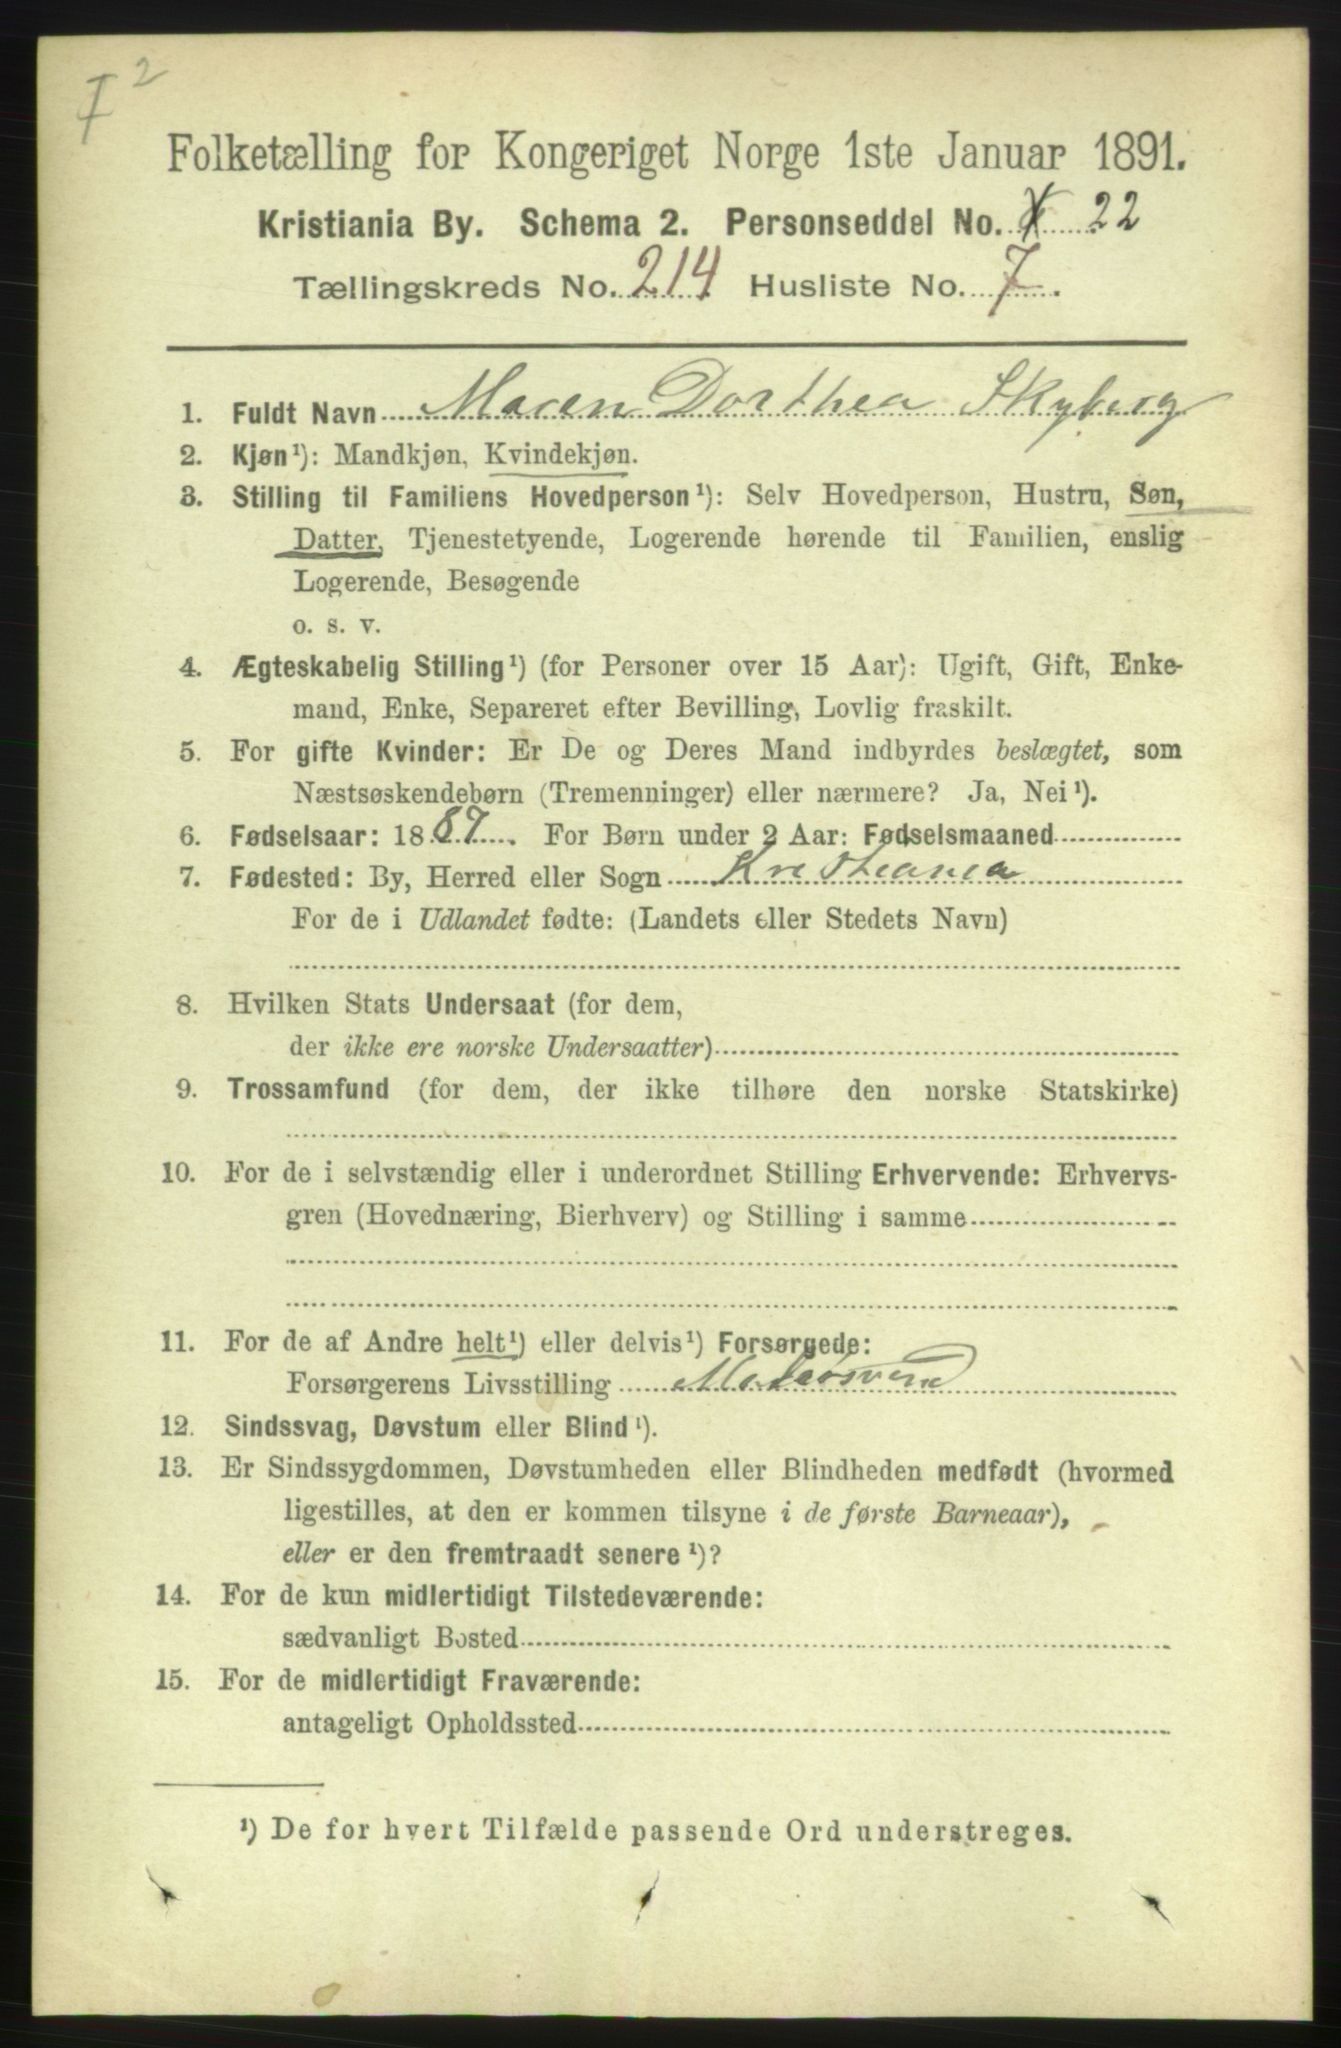 I 2
Folketælling for Kongeriget Norge 1ste Januar 1891.
Kristiania By. Schema 2. Personseddel No. 22
Tællingskreds No. 214 Husliste No. 7.
1. Fuldt Navn Maren Dorthea Skyberg
2. Kjøn¹): Mandkjøn, Kvindekjøn.
3. Stilling til Familiens Hovedperson¹): Selv Hovedperson, Hustru, Søn,
Datter, Tjenestetyende, Logerende hørende til Familien, enslig
Logerende, Besøgende
o. s. v.
4. Ægteskabelig Stilling¹) (for Personer over 15 Aar): Ugift, Gift, Enke-
mand, Enke, Separeret efter Bevilling, Lovlig fraskilt.
5. For gifte Kvinder: Er De og Deres Mand indbyrdes beslægtet, som
Næstsøskendebørn (Tremenninger) eller nærmere? Ja, Nei¹).
6. Fødselsaar: 1887. For Børn under 2 Aar: Fødselsmaaned
7. Fødested: By, Herred eller Sogn Kristiania
For de i Udlandet fødte: (Landets eller Stedets Navn)
8. Hvilken Stats Undersaat (for dem,
der ikke ere norske Undersaatter)
9. Trossamfund (for dem, der ikke tilhøre den norske Statskirke)
10. For de i selvstændig eller i underordnet Stilling Erhvervende: Erhvervs-
gren (Hovednæring, Bierhverv) og Stilling i samme
11. For de af Andre helt¹) eller delvis¹) Forsørgede:
Forsørgerens Livsstilling Malersvend
12. Sindssvag, Døvstum eller Blind¹).
13. Er Sindssygdommen, Døvstumheden eller Blindheden medfødt (hvormed
ligestilles, at den er kommen tilsyne i de første Barneaar),
eller er den fremtraadt senere¹)?
14. For de kun midlertidigt Tilstedeværende:
sædvanligt Bosted
15. For de midlertidigt Fraværende:
antageligt Opholdssted
¹) De for hvert Tilfælde passende Ord understreges.